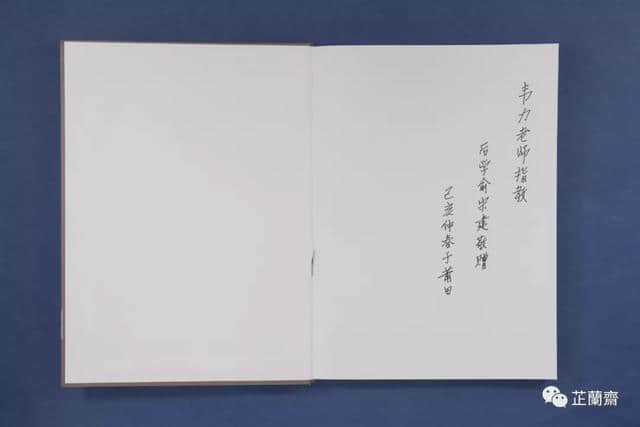 韦力老师指教
后学俞宗建敬赠
己亥仲春于莆田
芷蘭齋